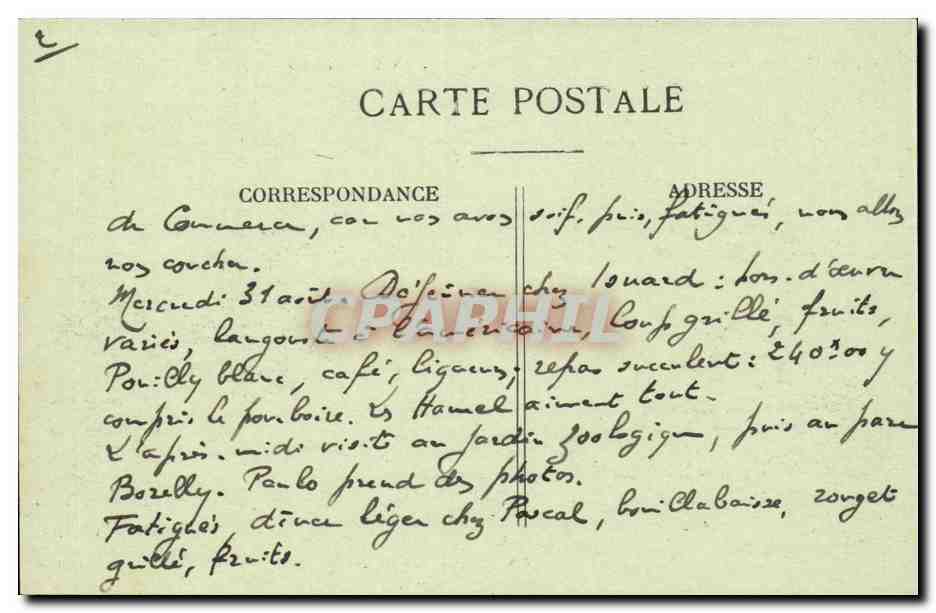 2
CARTE POSTALE
CORRESPONDANCE
ADRESSE
du Commerce, car nous avons soif, puis, fatigués, nous allons
nous coucher.
Mercredi 31 août. Déjeuner chez Isnard : hors-d'œuvre
variés, langouste à l'américaine, loup grillé, fruits,
Pouilly blanc, café, liqueurs ; repas succulent : 240 00 y
compris le pourboire. Les Hamel aiment tout.
L'après-midi visite au Jardin zoologique, puis au parc
Borelly. Paulo prend des photos.
Fatigués, dîner léger chez Pascal, bouillabaisse, rouget
grillé, fruits.
CPAPHIL